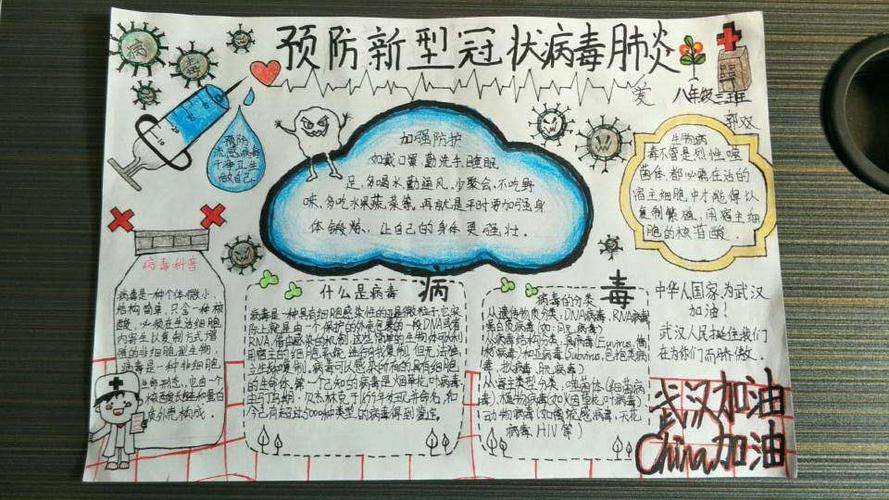 预防新型冠状病毒肺炎
八年级三班
郭双
病
毒
预防
流感病毒
干净卫生
做自己
加强防护
如戴口罩 勤洗手睡眠
足,多喝水,勤通风,少聚会,不吃野
味,多吃水果蔬菜等。再就是平时要加强身
体锻炼,让自己的身体更强壮.
生物病
毒不管是烈性噬
菌体,都必需在活的
宿主细胞中才能得以
复制繁殖,用宿主细
胞的核苷酸.
病毒科普
病毒是一种个体微小,
结构简单,只含一种核
酸,必须在生活细胞
内寄生以复制方式增
殖的非细胞型生物,
病毒是一种非细胞
生命形态,它由一个
核酸长链和蛋白
质外壳构成.
什么是病毒
病
RNA,借由感染的机制,这些简单的生物体可以利
用宿主的细胞系统进行自我复制,但无法独
立生长和复制,病毒可以感染所有的具有细胞
的生命体,第一个已知的病毒是烟草花叶病毒,
今已有超过5000种类型的病毒得到鉴定.
病毒的分类
毒
从遗传物质分类,DNA病毒,RNA病毒
蛋白质病毒(如:朊病毒)
毒,拟病毒,朊病毒)
从寄主类型分类,噬菌体(细菌病毒)
植物病毒(如烟草花叶病毒)
动物病毒(如禽流感病毒,天花
病毒,HIV等)
中华人国家为武汉
加油!
武汉人民挺住我们
在为你们而骄傲.
武汉加油
China加油